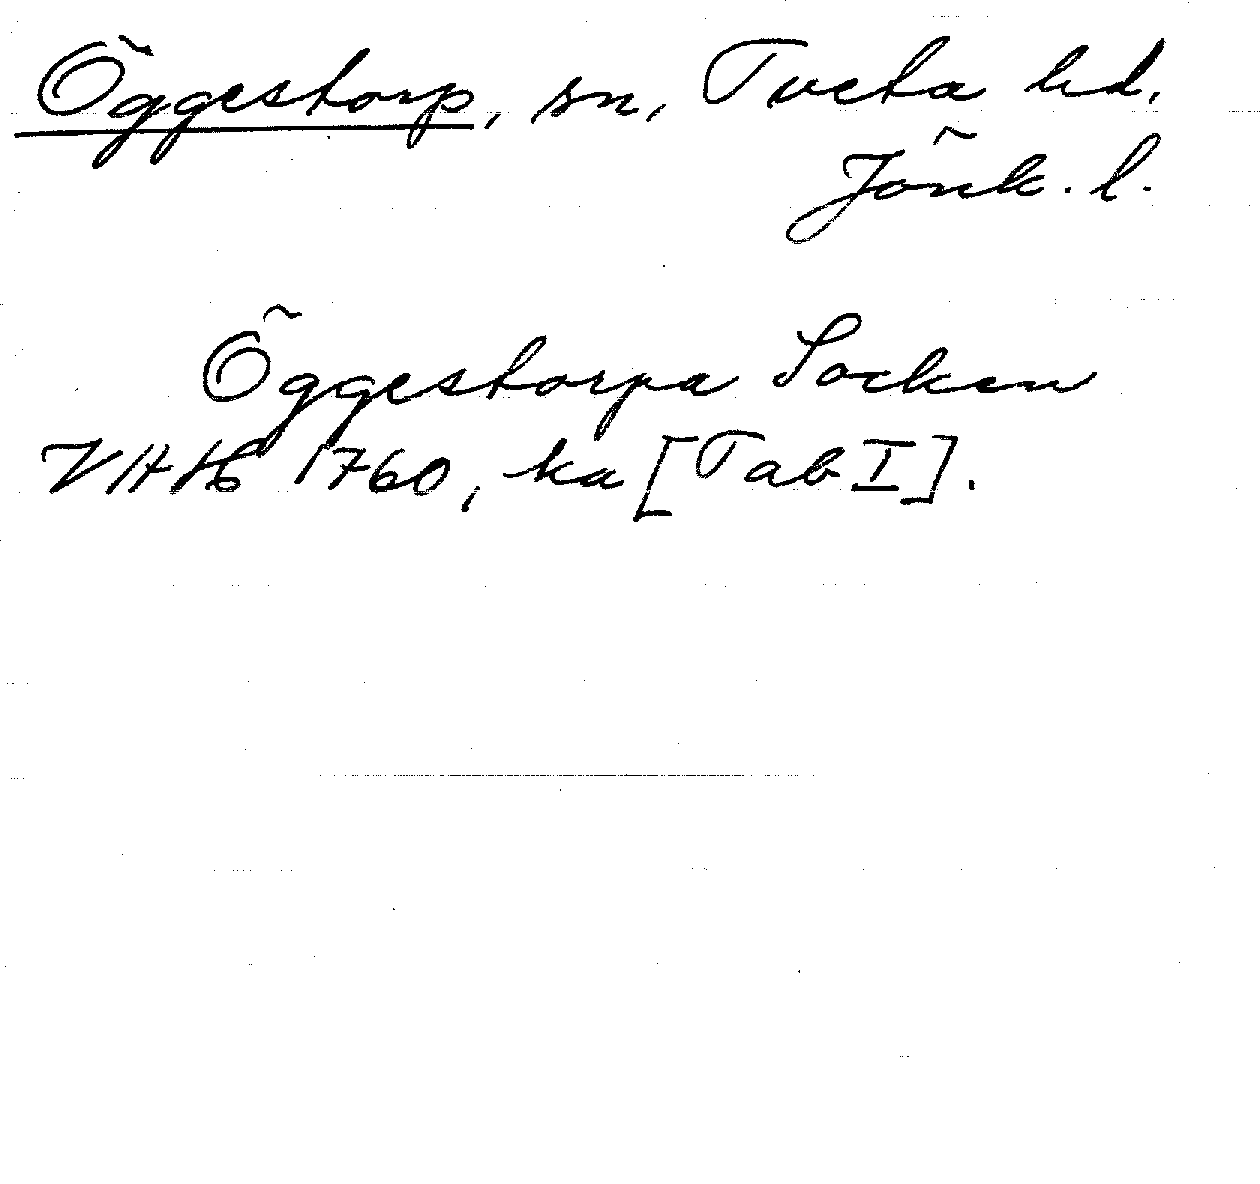 Öggestorp, sn, Tveta hd.
Jönk. l.
Öggestorpa Socken
VAH 1760, ka [Tab I].